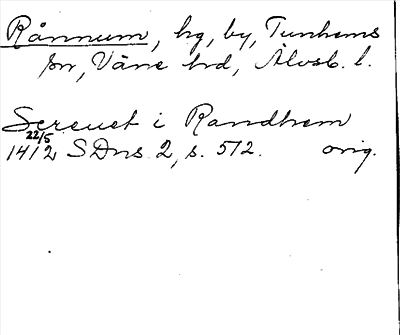 Rånnum, hg, by, Tunhems
sn, Väne hd, Älvsb. l.
Screuet i Randhem
22/5
1412 SDns 2, s. 512. orig.